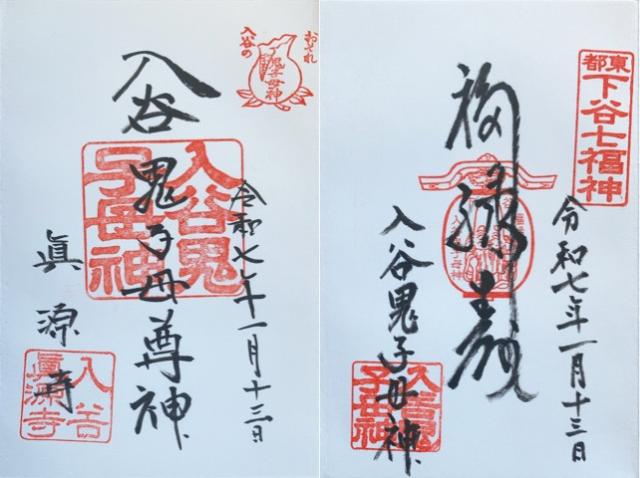 おそれ
入谷の
鬼子母神
入谷
鬼子母尊神
令和七年一月十三日
眞源寺
入谷鬼
子母神
入谷
眞源寺
東都
下谷七福神
福禄寿
令和七年一月十三日
入谷鬼子母神
入谷鬼
子母神